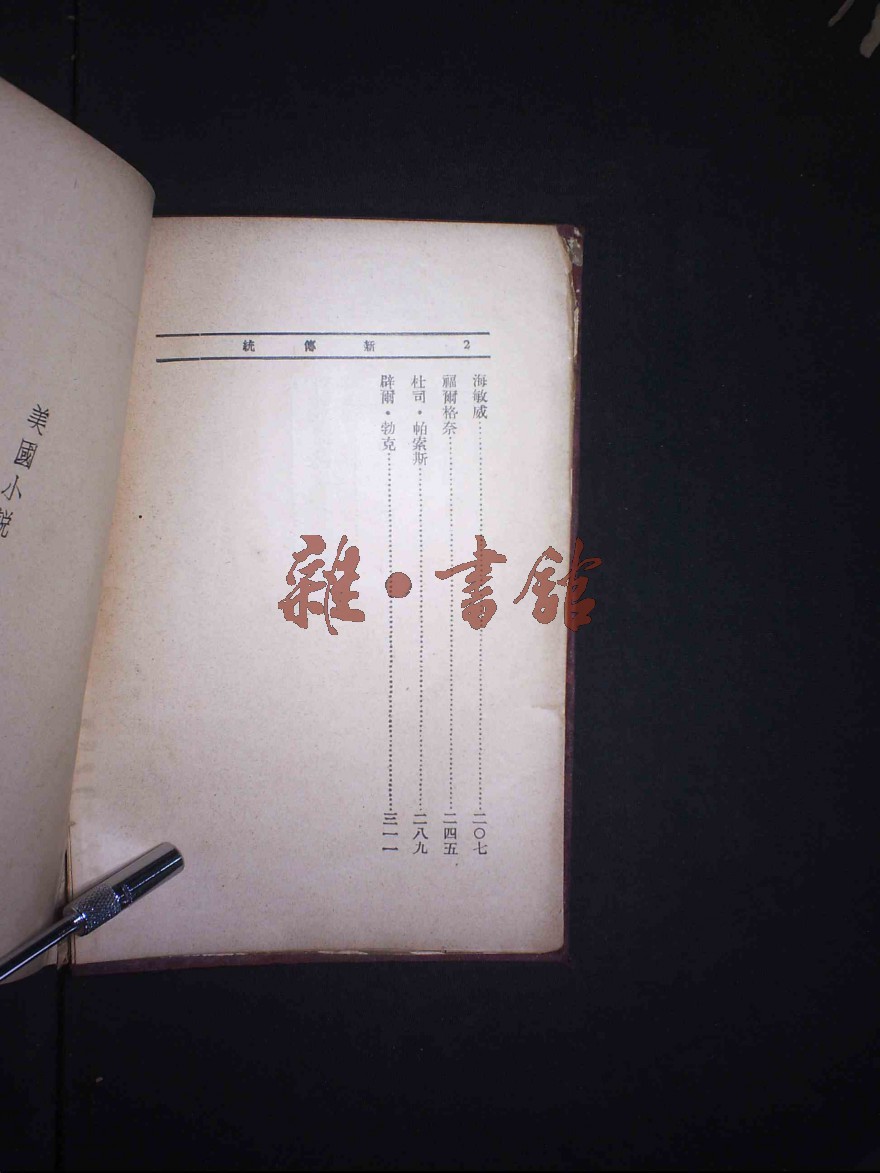 2 新傳統
海敏威……二〇七
福爾格奈……二四五
杜司·帕索斯……二八九
辟爾·勃克……三一一
美國小説
雜·書館